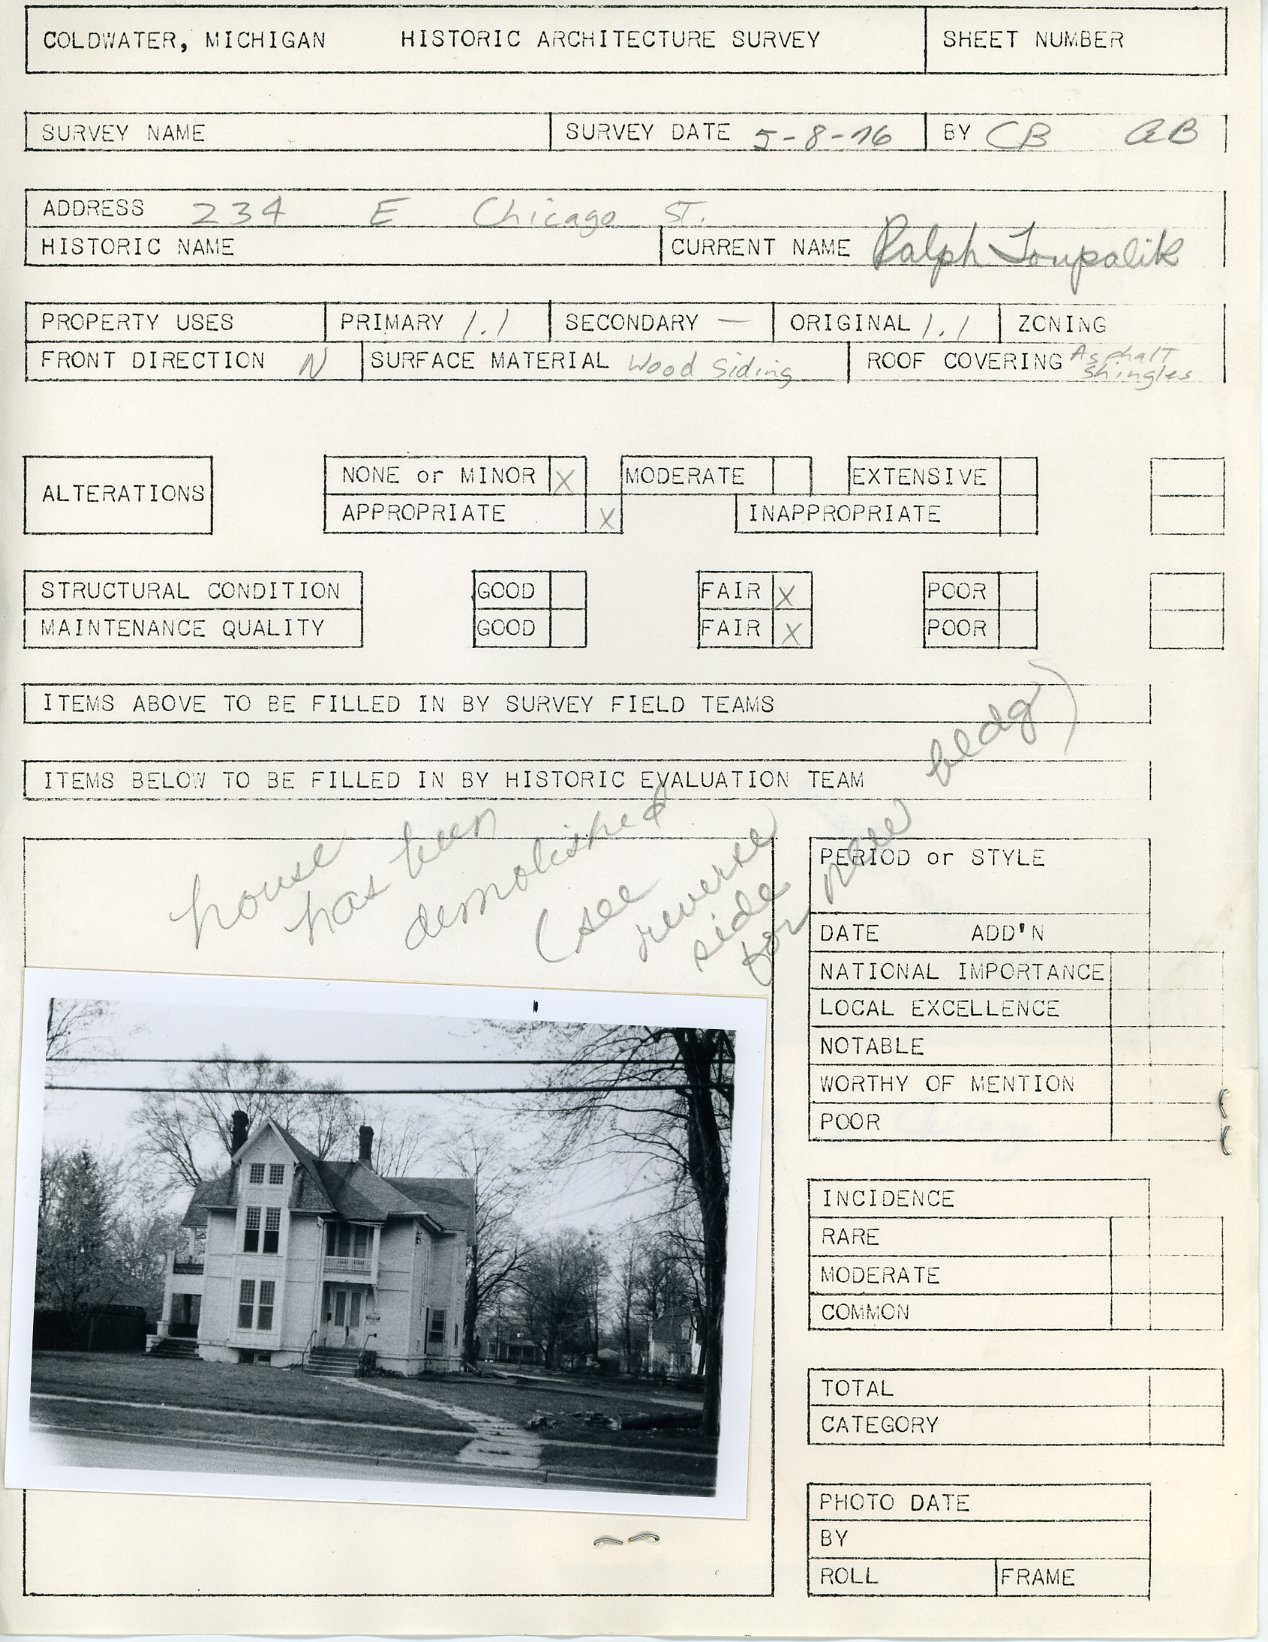 COLDWATER, MICHIGAN HISTORIC ARCHITECTURE SURVEY SHEET NUMBER
SURVEY NAME SURVEY DATE 5-8-76 BY CB AB
ADDRESS 234 E Chicago ST.
HISTORIC NAME CURRENT NAME Ralph Toupalik
PROPERTY USES PRIMARY 1.1 SECONDARY — ORIGINAL 1.1 ZONING
FRONT DIRECTION N SURFACE MATERIAL Wood Siding ROOF COVERING Asphalt Shingles
ALTERATIONS NONE or MINOR X MODERATE EXTENSIVE
APPROPRIATE X INAPPROPRIATE
STRUCTURAL CONDITION GOOD FAIR X POOR
MAINTENANCE QUALITY GOOD FAIR X POOR
ITEMS ABOVE TO BE FILLED IN BY SURVEY FIELD TEAMS
ITEMS BELOW TO BE FILLED IN BY HISTORIC EVALUATION TEAM
house
has been
demolished
(see
reverse
side
for new bldg)
PERIOD or STYLE
DATE ADD'N
NATIONAL IMPORTANCE
LOCAL EXCELLENCE
NOTABLE
WORTHY OF MENTION
POOR
INCIDENCE
RARE
MODERATE
COMMON
TOTAL
CATEGORY
PHOTO DATE
BY
ROLL FRAME